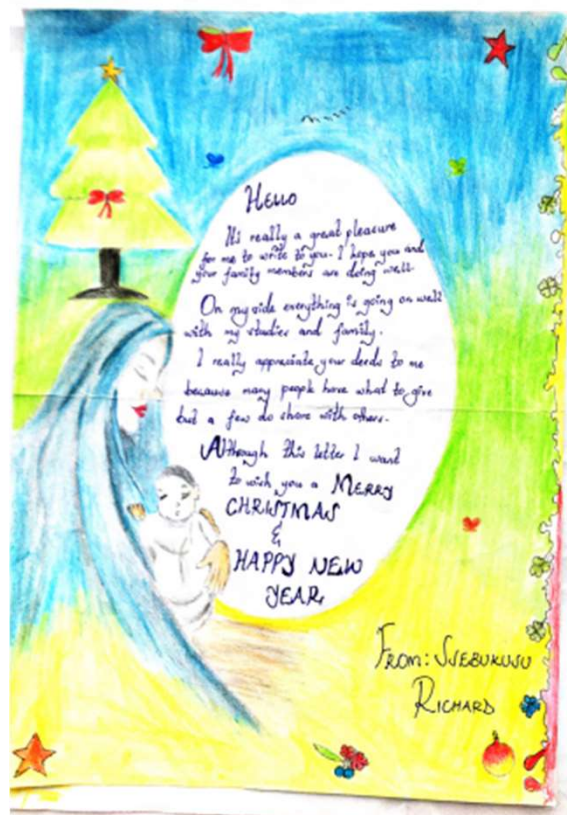 Hello
It's really a great pleasure
for me to write to you. I hope you and
your family members are doing well.
On my side everything is going on well
with my studies and family.
I really appreciate your deeds to me
because many people have what to give
but a few do share with others.
Although this letter I want
to wish you a MERRY
CHRISTMAS
&
HAPPY NEW
YEAR
FROM: SSEBUKUSU
RICHARD